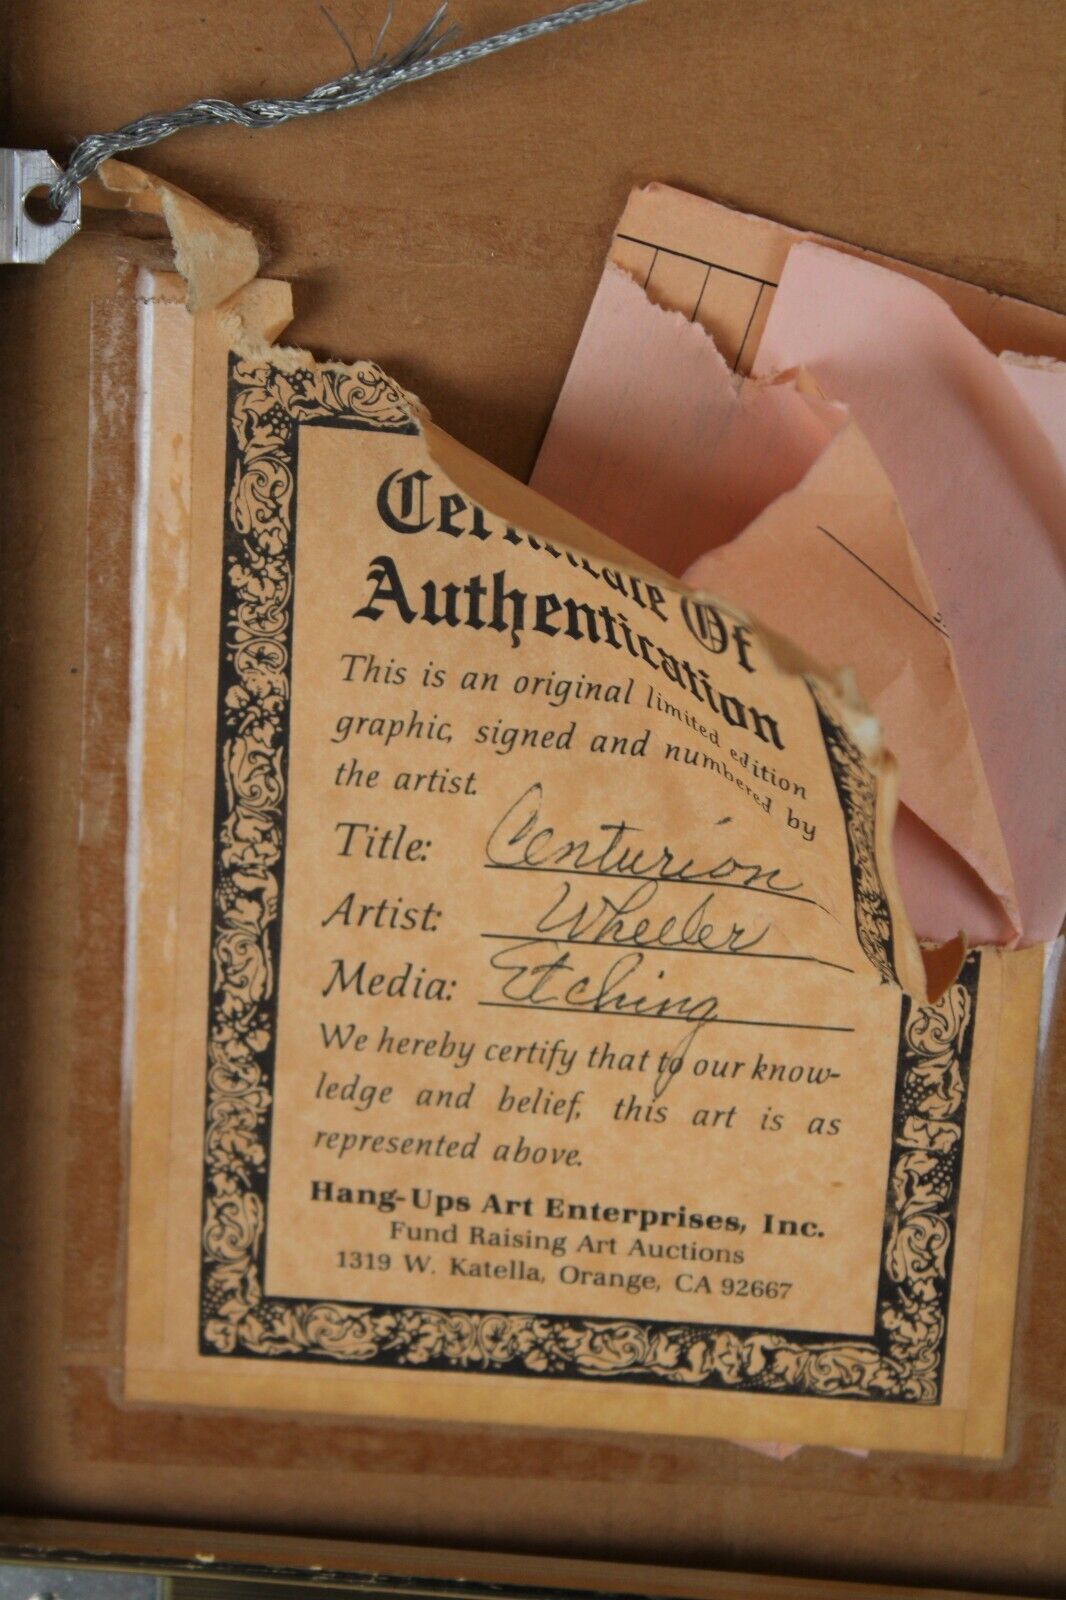 Certificate Of
Authentication
This is an original limited edition
graphic, signed and numbered by
the artist.
Title: Centurion
Artist: Wheeler
Media: Etching
We hereby certify that to our know-
ledge and belief, this art is as
represented above.
Hang-Ups Art Enterprises, Inc.
Fund Raising Art Auctions
1319 W. Katella, Orange, CA 92667